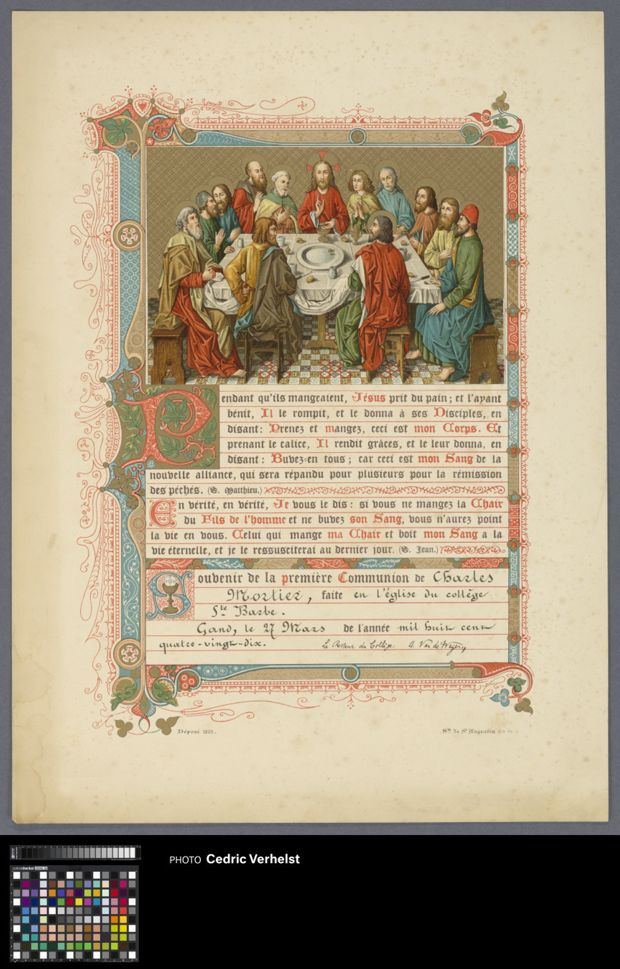 Pendant qu'ils mangeaient, Jésus prit du pain; et l'ayant
bénit, Il le rompit, et le donna à ses Disciples, en
disant: Prenez et mangez, ceci est mon Corps. Et
prenant le calice, Il rendit grâces, et le leur donna, en
disant: Buvez-en tous; car ceci est mon Sang de la
nouvelle alliance, qui sera répandu pour plusieurs pour la rémission
des péchés. (S. Matthieu.)
En vérité, en vérité, Je vous le dis: si vous ne mangez la Chair
du Fils de l'homme et ne buvez son Sang, vous n'aurez point
la vie en vous. Celui qui mange ma Chair et boit mon Sang a la
vie éternelle, et je le ressusciterai au dernier jour. (S. Jean.)
Souvenir de la première Communion de Charles
Mortier, faite en l'église du collège
Ste Barbe.
Gand, le 27 Mars de l'année mil huit cent
quatre-vingt-dix. Le Recteur du Collège
Déposé Sté de St Augustin
PHOTO Cedric Verhelst